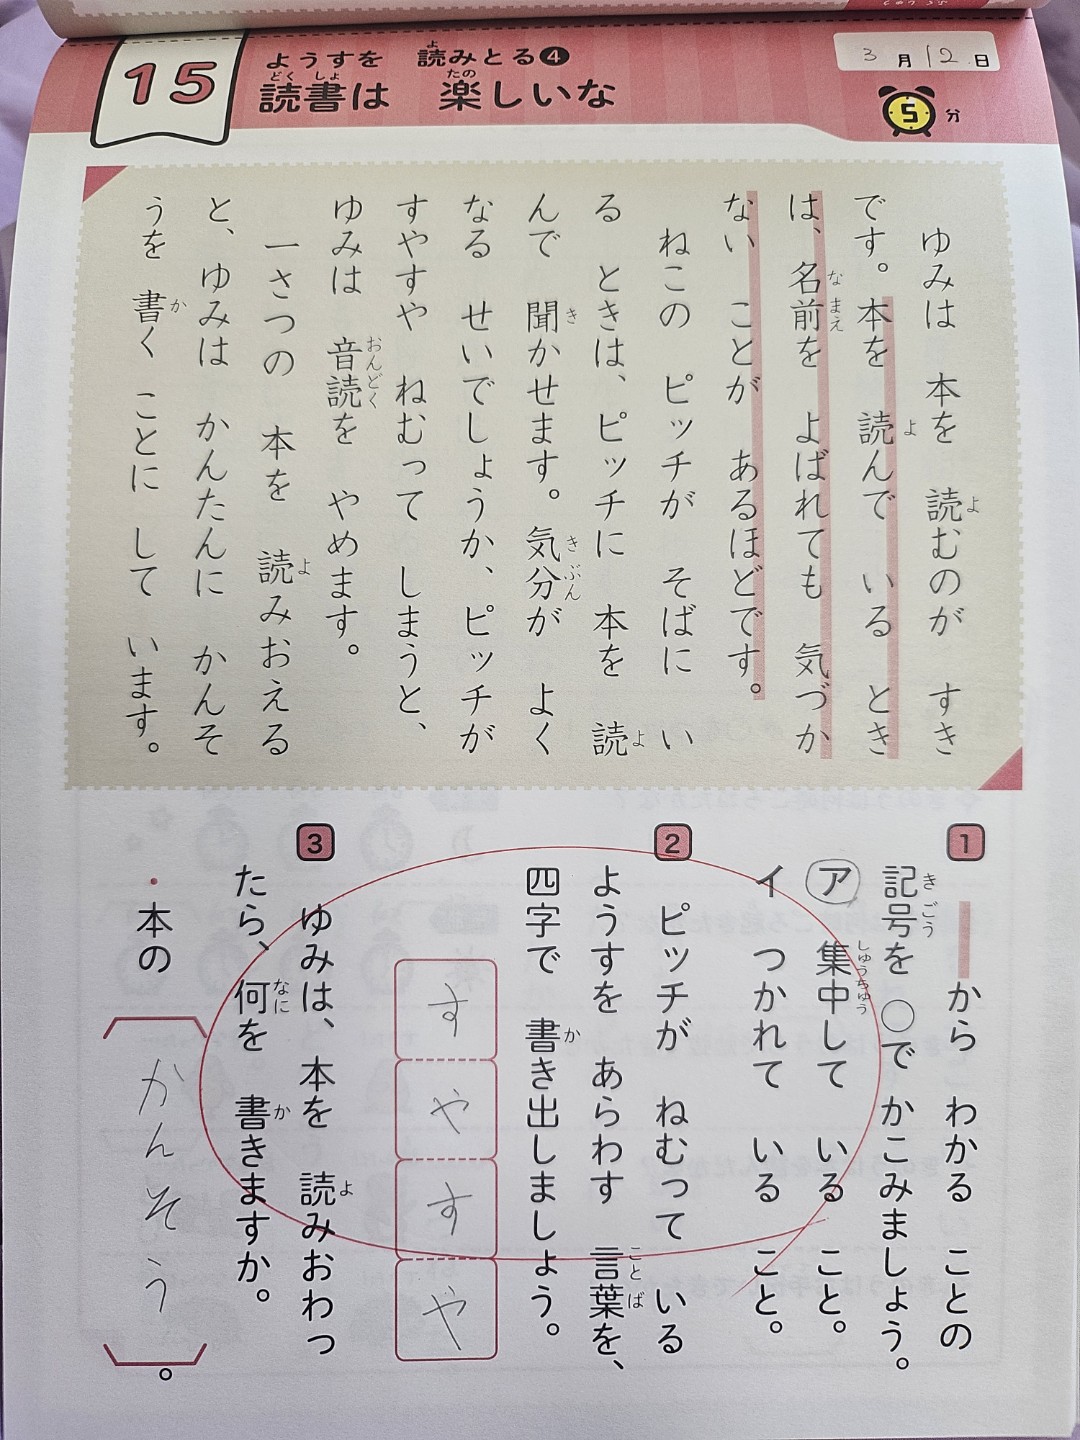 15
ようすを 読みとる❹
読書は 楽しいな
3月12日
5分
ゆみは 本を 読むのが すき
です。本を 読んで いる とき
は、名前を よばれても 気づか
ない ことが あるほどです。
ねこの ピッチが そばに い
る ときは、ピッチに 本を 読
んで 聞かせます。気分が よく
なる せいでしょうか、ピッチが
すやすや ねむって しまうと、
ゆみは 音読を やめます。
一さつの 本を 読みおえる
と、ゆみは かんたんに かんそ
うを 書く ことに して います。
1 ーから わかる ことの
記号を ○で かこみましょう。
ア 集中して いる こと。
イ つかれて いる こと。
2 ピッチが ねむって いる
ようすを あらわす 言葉を、
四字で 書き出しましょう。
すやすや
3 ゆみは、本を 読みおわっ
たら、何を 書きますか。
・本の [かんそう]。